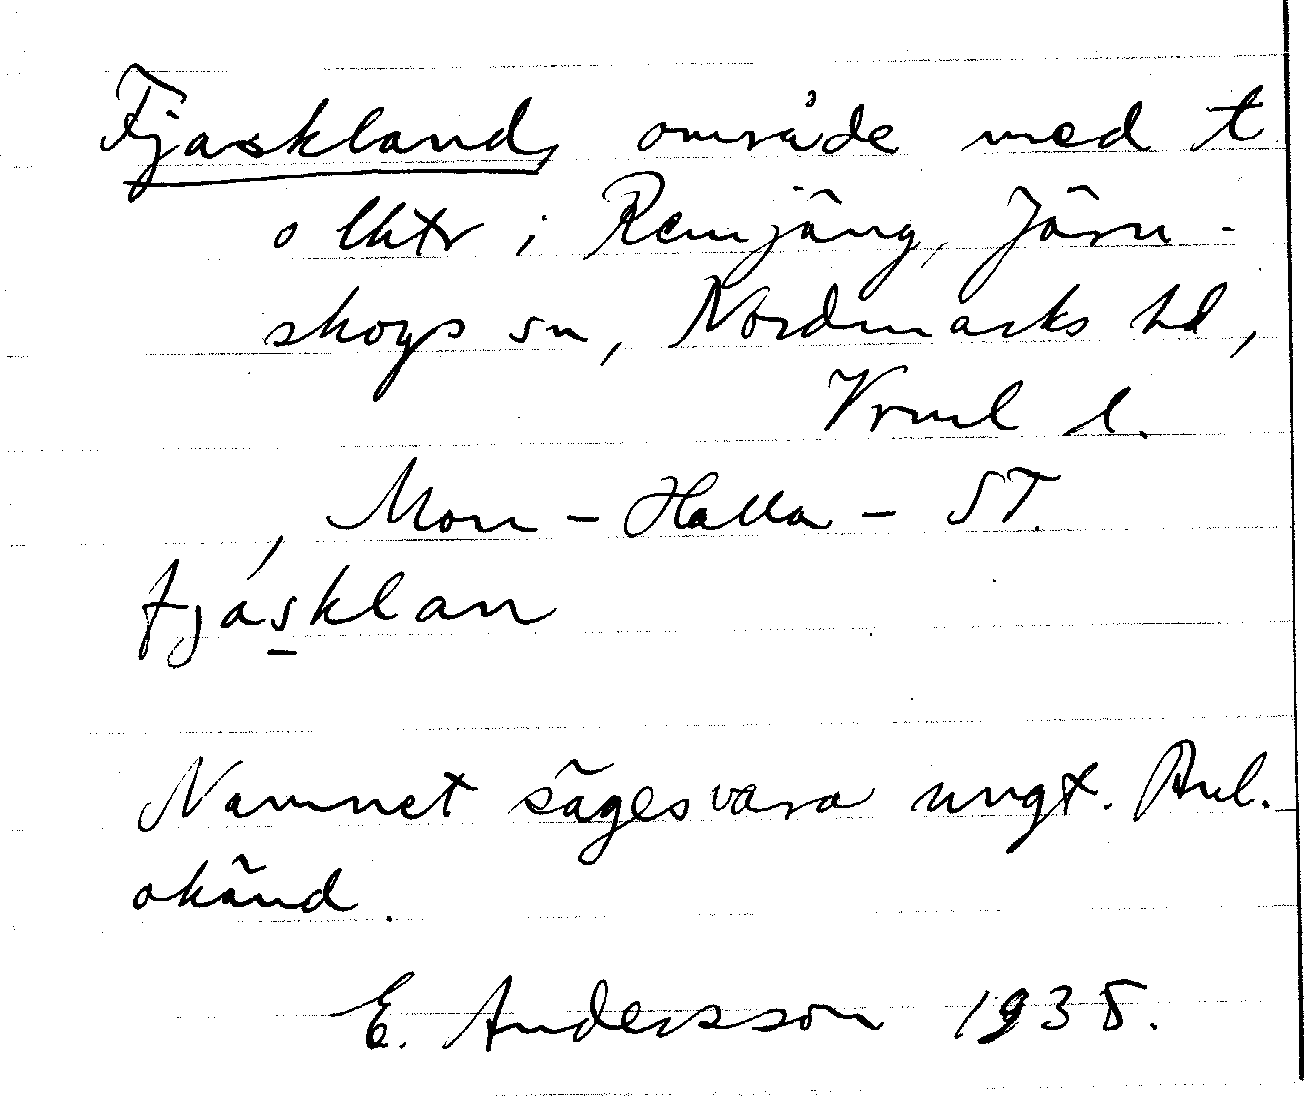 Fjaskland, område med t
o lhtr i Remjäng, Järn-
skogs sn, Nordmarks hd,
Vrml l.
Mon - Halla - ST.
fjásklan
Namnet säges vara ungt. Anl.
okänd.
E. Andersson 1938.